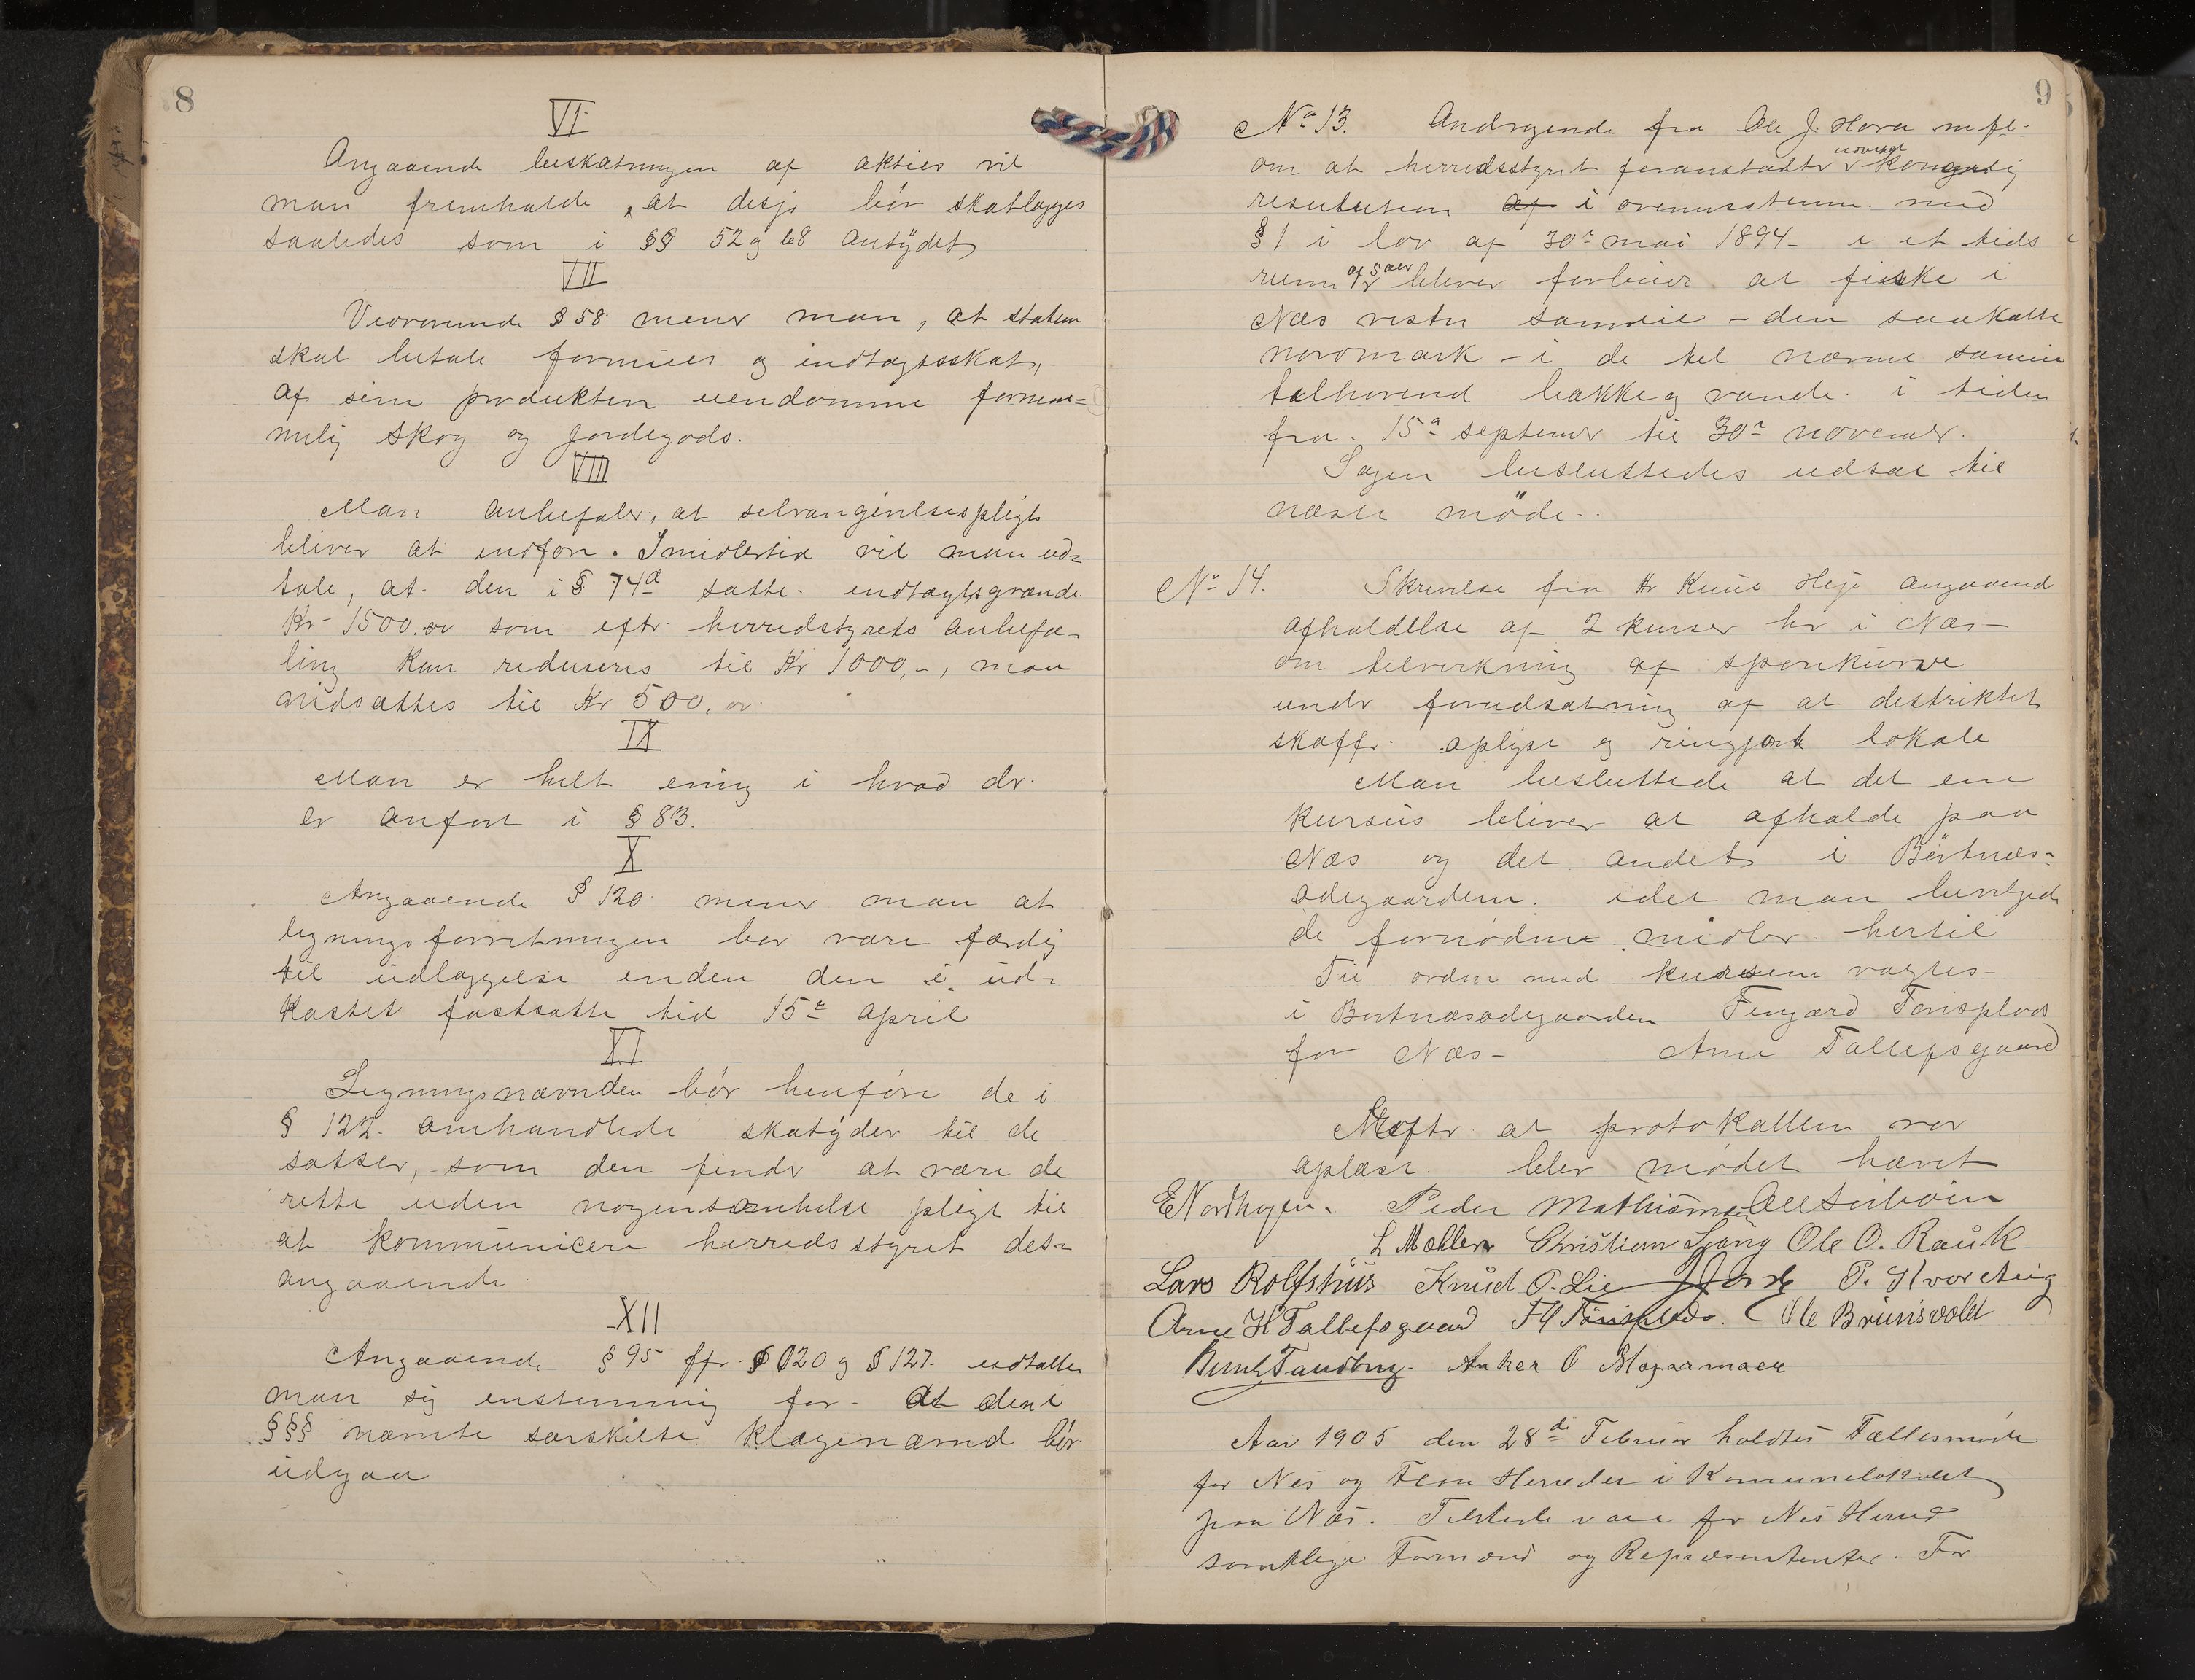 8
VI
Angaaende beskatningen af aktier vil
man fremholde, at disse bör skatlægges
saaledes som i §§ 52 og 68 antÿdet
VII
Vedrørende § 58 mener man, at staten
skal betale formues og indtægtsskat,
af sine produktive eiendomme fornem=
melig skog og Jordegods.
VIII
Man anbefaler, at selvangivelsespligt
bliver at indføre. Imidlertid vil man ud=
tale, at den i § 74d satte indtægtsgrænde
Kr 1500.00 som efter herredstyrets anbefa=
ling kan reduseres til Kr 1000,-, maa
nidsættes til Kr 500,00.
IX
Man er helt enig i hvad der
er anført i § 83.
X
Angaaende § 120 mener man at
ligningsforretningen bør være færdig
til udlæggelse inden den i ud=
kastet fastsatte tid 15de april
XI
Ligningsnævnden bör henføre de i
§ 122 omhandlede skatÿder til de
satser, som den finder at være de
rette uden nogensomhelst pligt til
at kommunicere herredsstyret des=
angaaende.
XII
Angaaende § 95 jfr. § 120 og § 127 udtalte
man sig enstemmig for at den i
§§§ nævnte særskilte klagenævnd bör
udgaa
9
No 13. Andragende fra Ole J. Hera mfl.
om at herredsstyret foranstalter udvirket kongelig
resulution af i overensstemm. med
§ 1 i lov af 30te mai 1894 i et tids
rum af 5 aar bliver forbudt at fiske i
Næs vestre sameie - den saakalte
nordmark - i de til nævnte sameie
tilhørende bække og vande i tiden
fra 15de september til 30te november.
Sagen besluttedes udsat til
næste möde.
No 14. Skrivelse fra Hr Knud Heje angaaende
afholdelse af 2 kurser her i Næs
om tilvirkning af sponkurve
under forudsætning af at distriktet
skaffer oplyst og rengjort lokale
Man besluttede at det ene
kursus bliver at afholde paa
Næs og det andet i Börtnæs=
ødegaarden. idet man bevilgede
de fornødne midler hertil
Til ordne med kursene vagtes
i Bortnæsødegaarden Fingard Tönsplads
for Næs - Arne Tollefsgaard
Efter at protokollen var
oplæst blev mødet hævet
E Nordhagen. Peder Mathisen
L Mæhlen Christian Ljong Ole O. Rauk
Lars Rolfshus Knud O. Lie
Arne H Tollefsgaard Ole Brunsvold
Anker O
Aar 1905 den 28de Februar holdtes Fællesmøde
for Nes og Flaa Herreder i Komunelokalet
paa Næs. Tilstede vare for Nes Herred
samtlige Formænd og Repræsentanter. For